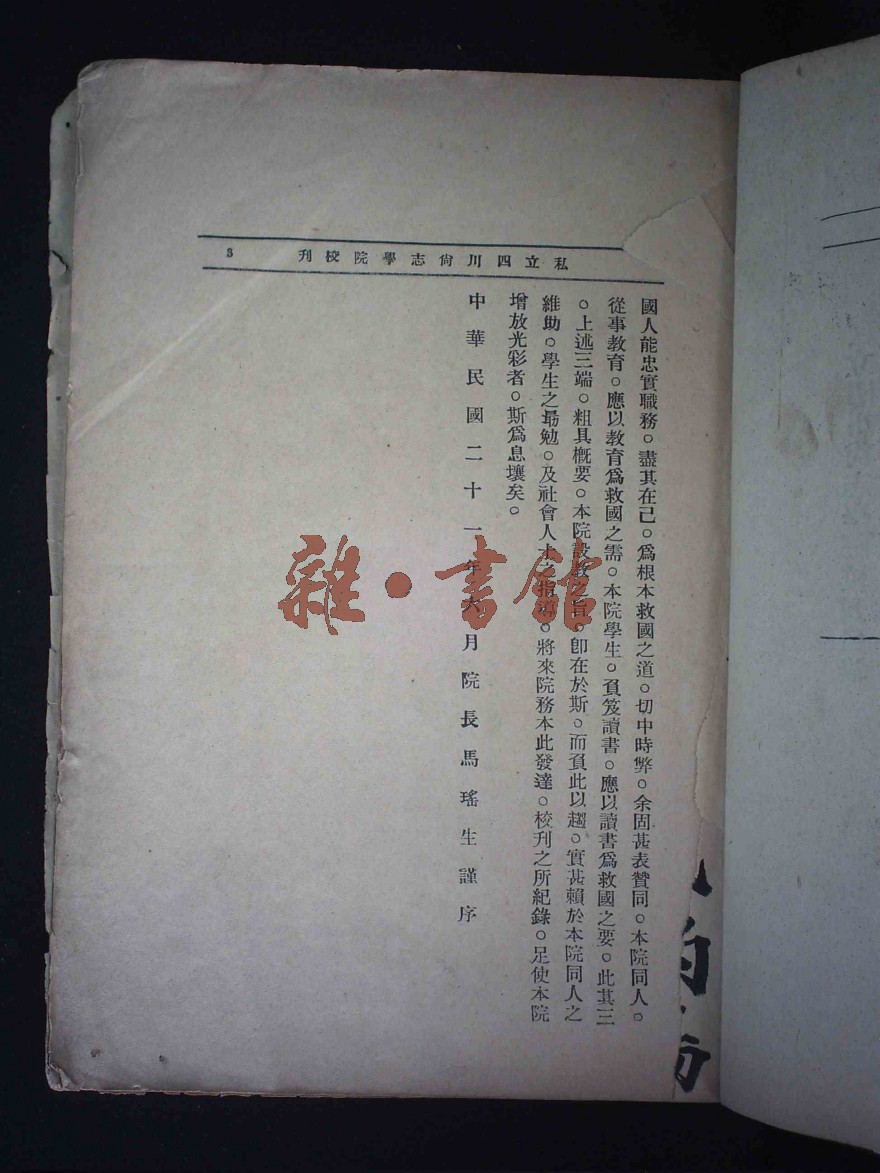 私立四川尙志學院校刊
3
國人能忠實職務。盡其在己。爲根本救國之道。切中時弊。余固甚表贊同。本院同人。
從事教育。應以教育爲救國之需。本院學生。負笈讀書。應以讀書爲救國之要。此其三
。上述三端。粗具槪要。本院設教之旨。卽在於斯。而負此以趨。實甚賴於本院同人之
維助。學生之勗勉。及社會人士之指導。將來院務本此發達。校刊之所紀錄。足使本院
增放光彩者。斯爲息壤矣。
中華民國二十一年六月院長馬瑤生謹序
雜·書館